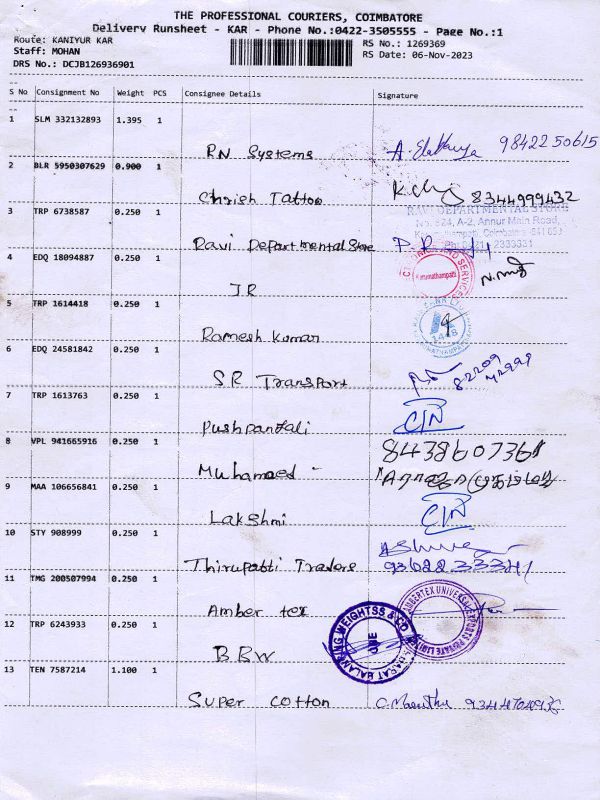 THE PROFESSIONAL COURIERS, COIMBATORE
Delivery Runsheet - KAR - Phone No.:0422-3505555 - Page No.:1
Route: KANIYUR KAR
Staff: MOHAN
DRS No.: DCJB126936901
RS No.: 1269369
RS Date: 06-Nov-2023
S No Consignment No Weight PCS Consignee Details Signature
1 SLM 332132893 1.395 1
RN Systems 98422 50615
2 BLR 5950307629 0.900 1
Chrish Tattoo 8344999432
3 TRP 6738587 0.250 1
RAVI DEPARTMENTAL STORE
A-2, Annur Main Road,
Ravi Departmental Store
4 EDQ 18094887 0.250 1
JR
5 TRP 1614418 0.250 1
Ramesh Kumar
6 EDQ 24581842 0.250 1
SR Transport
7 TRP 1613763 0.250 1
Pushpanjali
8 VPL 941665916 0.250 1
Muhamaed
9 MAA 106656841 0.250 1
Lakshmi
10 STY 908999 0.250 1
Thirupatti Traders
11 TMG 200507994 0.250 1
Amber tex
12 TRP 6243933 0.250 1
BBW
13 TEN 7587214 1.100 1
Super cotton